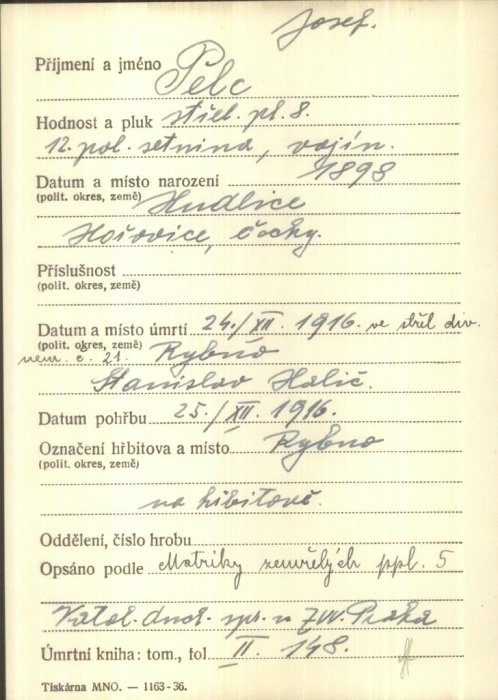 Josef.
Příjmení a jméno Pelc
Hodnost a pluk střel. pl. 8.
12. pol. setnina, vojín.
Datum a místo narození 1898
(polit. okres, země) Hudlice
Hořovice, Čechy.
Příslušnost
(polit. okres, země)
Datum a místo úmrtí 24./XII. 1916. ve střel div.
(polit. okres, země)
nem. č. 21. Rybno
Stanislav Halič.
Datum pohřbu 25./XII. 1916.
Označení hřbitova a místo Rybno
(polit. okres, země)
na hřbitově.
Oddělení, číslo hrobu
Opsáno podle Matriky zemřelých ppl. 5
Katol. duch. spr. u ZVV. Praha
Úmrtní kniha: tom., fol. II. 148.
Tiskárna MNO. — 1163-36.